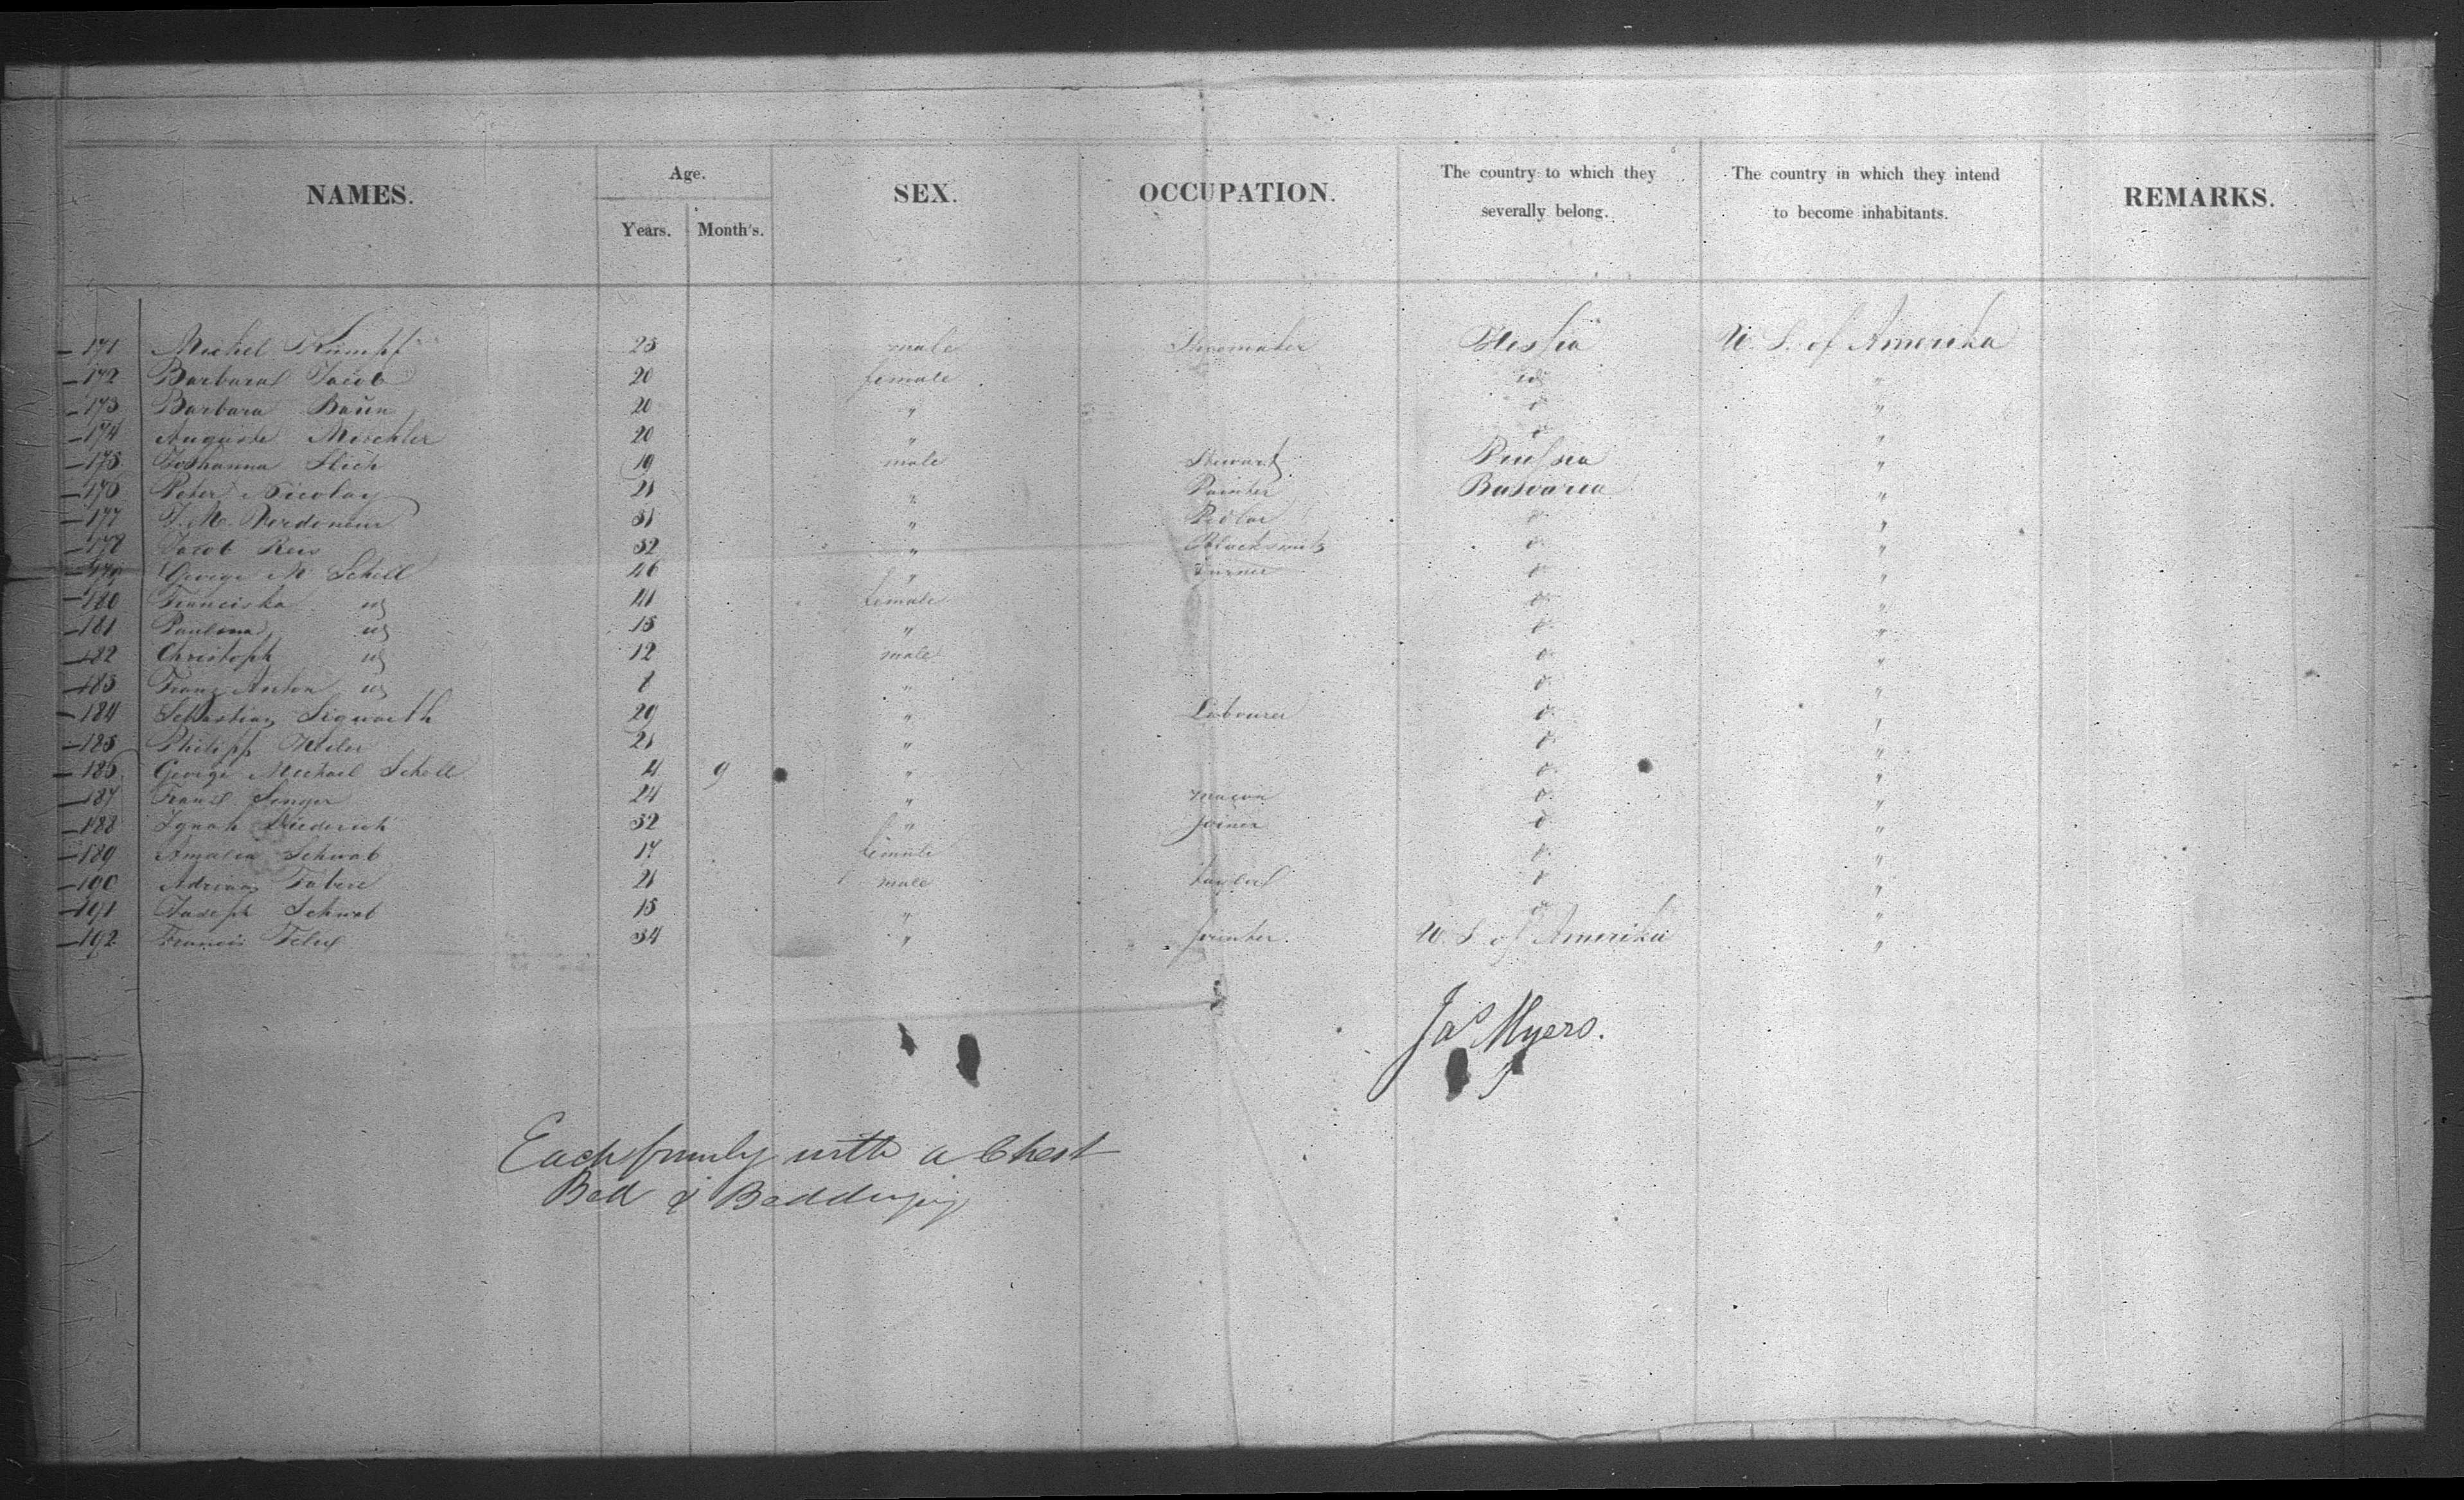 NAMES. Age. SEX. OCCUPATION. The country to which they severally belong. The country in which they intend to become inhabitants. REMARKS.
Years. Month's.
171 Michel Kümpf 25 male Shoemaker Hessia U. S. of Amerika
172 Barbara Jacob 20 female id "
173 Barbara Baun 20 " " "
174 Auguste Mischler 20 " " "
175 Johanna Stich 19 male Stewart Prussia "
176 Peter Nicolay 21 " Painter Bavaria "
177 J. M. 31 " Pedlar " "
178 Jacob Reis 32 " Blacksmith " "
179 George M Schell 46 " Turner " "
180 Franciska id 41 female " "
181 id 15 " " "
182 Christoph id 12 male " "
183 Franz Anton id " " "
184 Sebastian Sigwarth 29 " Labourer " "
185 Philipp 21 " " "
186 George Michael Schell 4 9 " " "
187 Franz Singer 24 " mason " "
188 32 " Joiner " "
189 Amalia Schwab 17 female " "
190 21 male " "
191 Joseph Schwab 15 " " "
192 Francis 34 " U. S. of Amerika "
Jas Myers.
Each family with a Chest
Bed & Bedding